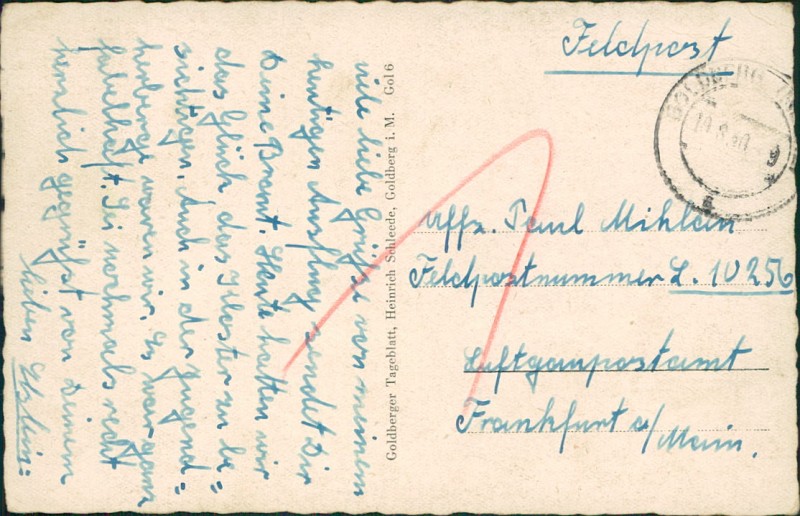 Feldpost
GOLDBERG
Uffz. Paul Mihlan
Feldpostnummer L. 10256
Luftgaupostamt
Frankfurt a/Main.
Goldberger Tageblatt, Heinrich Schleede, Goldberg i. M. Gol 6
viele liebe Grüße von meinem
heutigen Ausflug sendet Dir
Deine Braut. Heute hatten wir
das Glück, das Kloster zu be=
sichtigen. Auch in der Jugend=
herberge waren wir. Es war ganz
fabelhaft. Sei nochmals recht
herzlich gegrüßt von Deinem
lieben